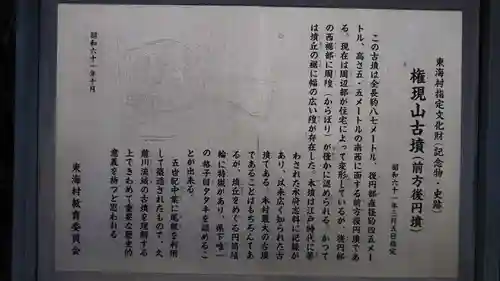 東海村指定文化財(記念物・史跡)
権現山古墳(前方後円墳)
昭和六十一年三月五日指定
この古墳は全長約八七メートル、後円部直径約四五メー
トル、高さ五・五メートルの南西に面する前方後円墳であ
る。現在は周辺部が住宅によって変形しているが、後円部
の西裾部に周隍(からぼり)が僅かに認められる。かつて
は墳丘の裾に幅の広い隍が存在した。本墳は江戸時代に著
わされた水府志料に記録が
あり、以来広く知られた古
墳である。本村最大の古墳
であることはもちろんであ
るが、墳丘をめぐる円筒埴
輪に特徴があり、県下唯一
の格子目タタキを認めるこ
とが出来る。
五世紀中葉に尾根を利用
して築造されたもので、久
慈川流域の古墳を理解する
上できわめて重要な歴史的
意義を持つと思われる
東海村教育委員会
昭和六十一年十月